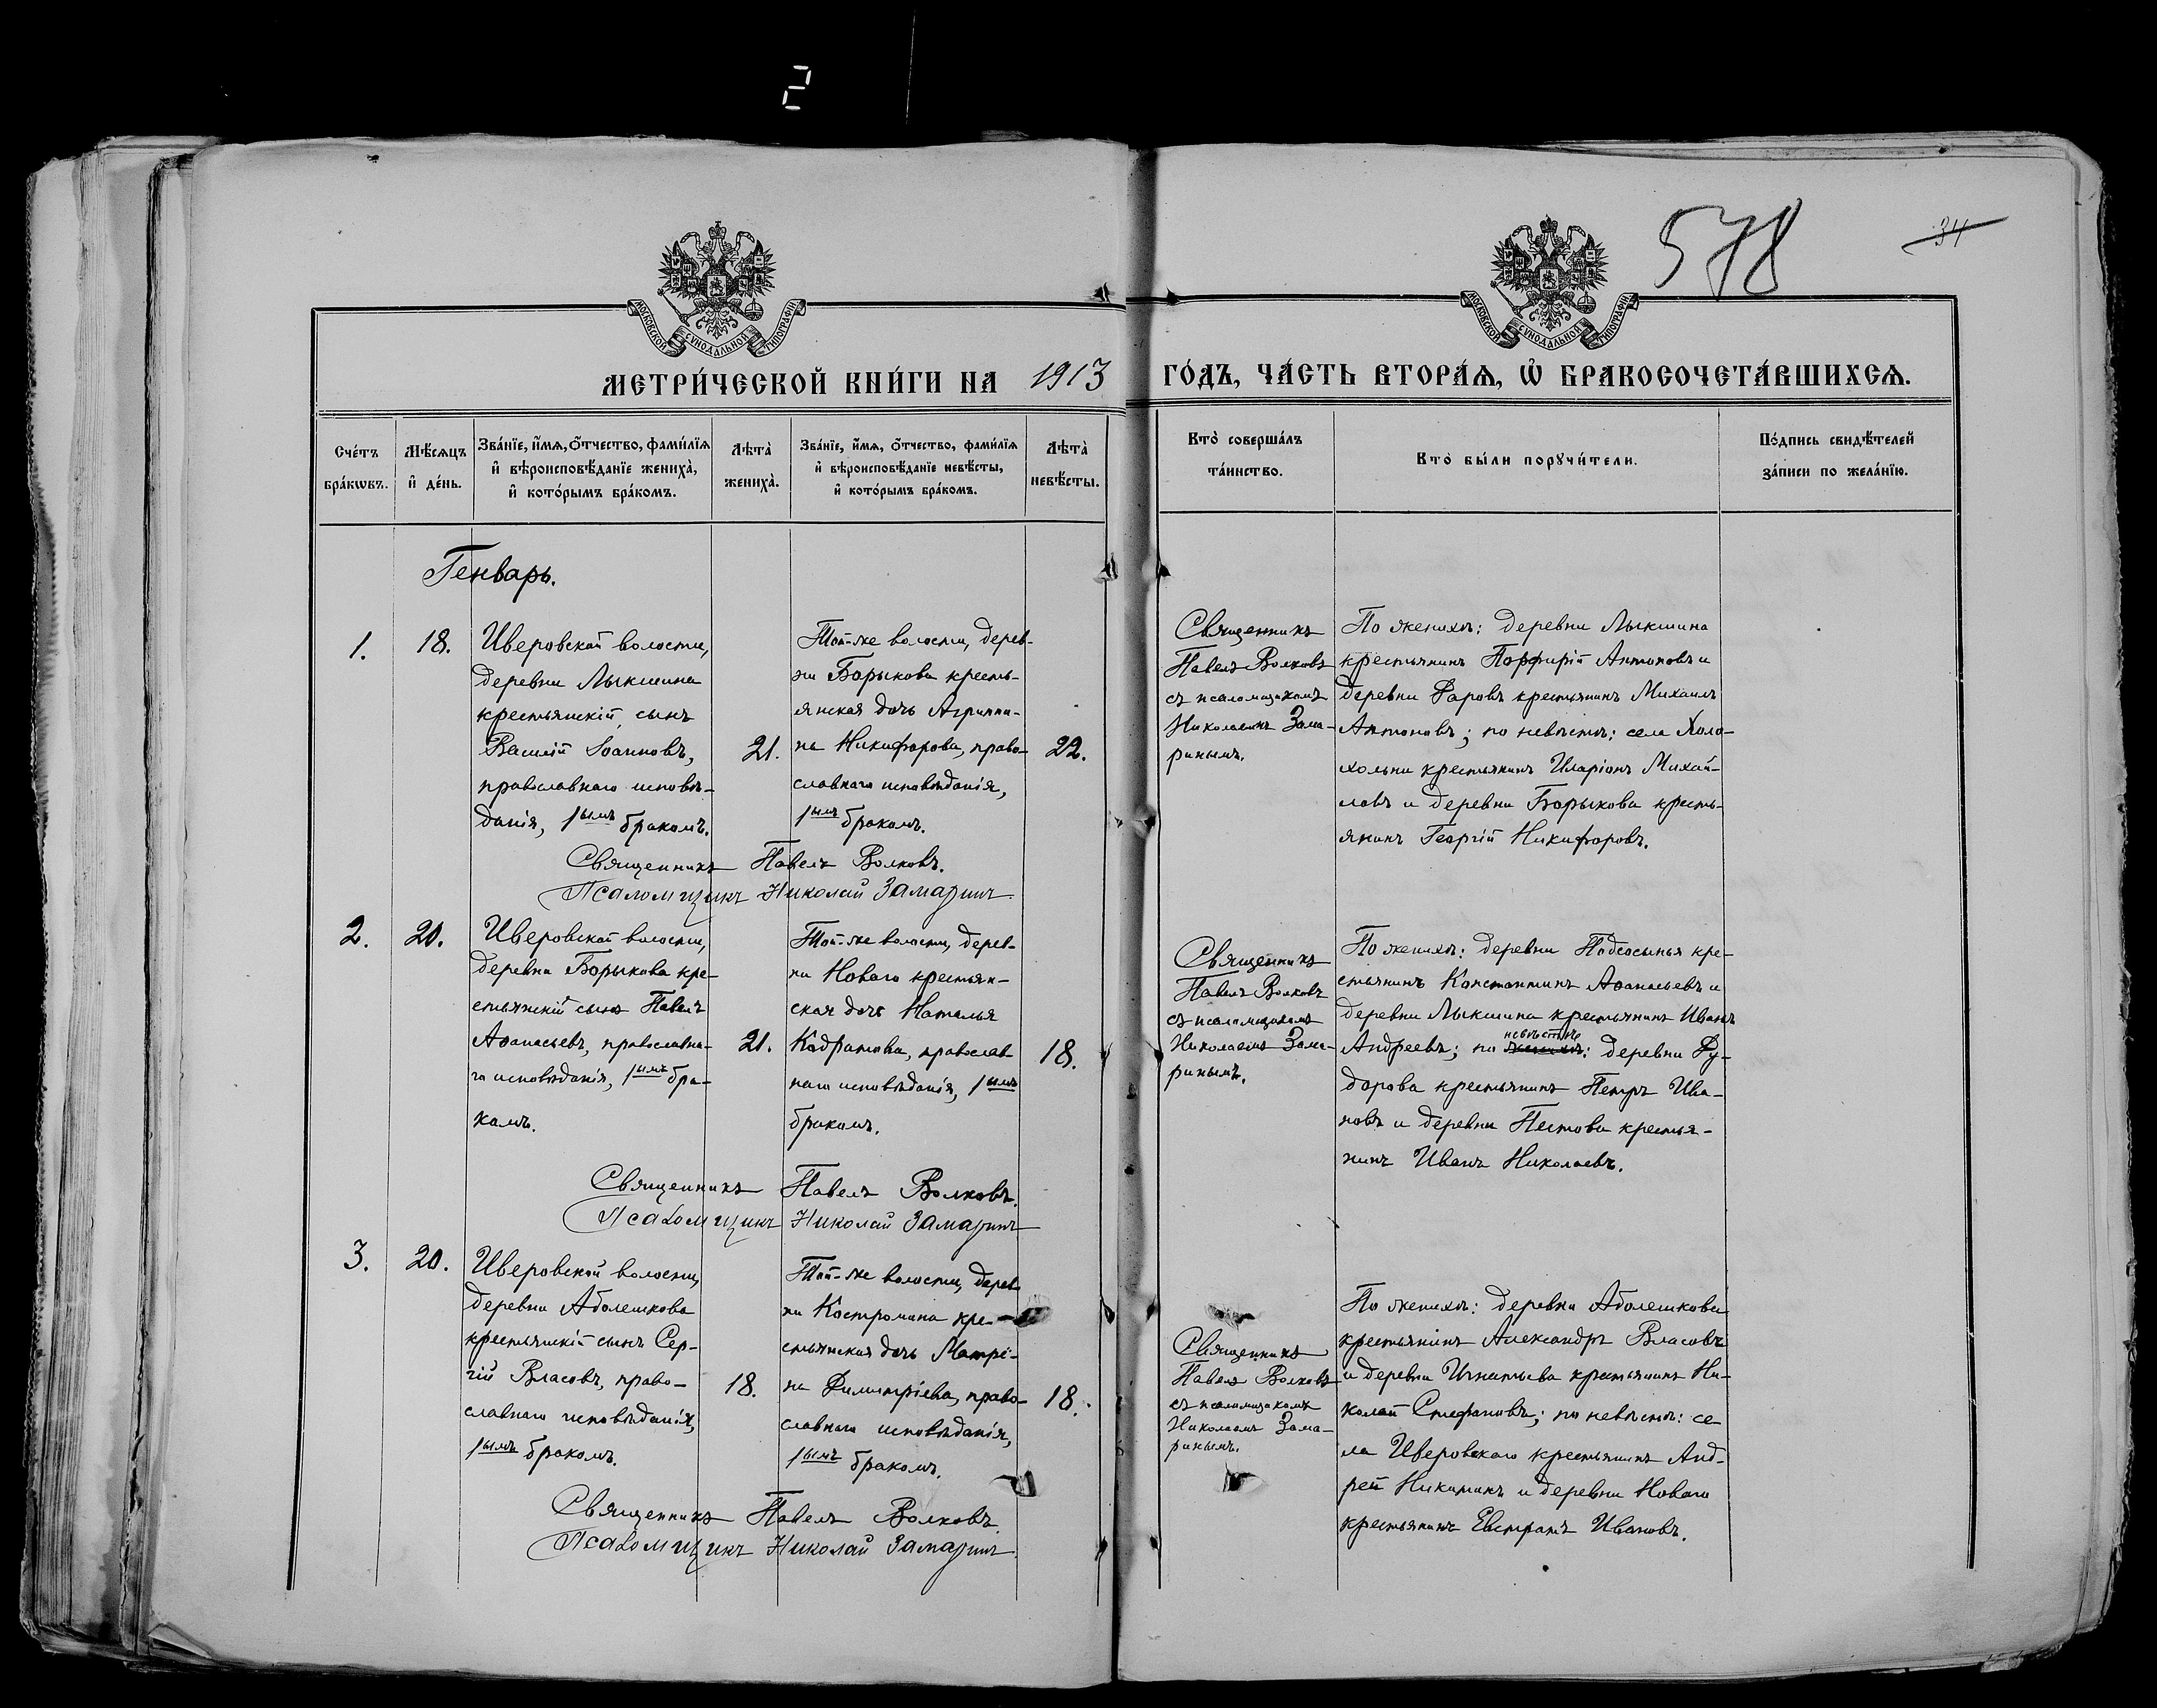 2
578
34
МОСКОВСКОЙ СУНОДАЛЬНОЙ ТИПОГРАФІИ
МОСКОВСКОЙ СУНОДАЛЬНОЙ ТИПОГРАФІИ
МЕТРИ́ЧЕСКОЙ КНИ́ГИ НА 1913 ГО́ДЪ, ЧА́СТЬ ВТОРА́Ѧ, Ѡ҆ БРАКОСОЧЕТА́ВШИХСѦ.
Сче́тъ
бра́кѡвъ.
Мѣ́сѧцъ
и҆ де́нь.
Зва́нїе, и҆́мѧ, о҆́тчество, фами́лїѧ
и҆ вѣроисповѣ́данїе жениха̀,
и҆ кото́рымъ бра́комъ.
Лѣта̀
жениха̀.
Зва́нїе, и҆́мѧ, о҆́тчество, фами́лїѧ
и҆ вѣроисповѣ́данїе невѣ́сты,
и҆ кото́рымъ бра́комъ.
Лѣта̀
невѣ́сты.
Кто̀ соверша́лъ
та́инство.
Кто̀ бы́ли порꙋчи́тели.
По́дпись свидѣ́телей
за́писи по жела́нїю.
Генварь.
1.
18.
Иверовской волости,
деревни Лыкшина
крестьянскій сынъ
Василій Іоанновъ,
православнаго исповѣ-
данія, 1ымъ бракомъ.
21.
Той-же волости, дерев-
ни Борыкова кресть-
янская дочь Агриппи-
на Никифорова, право-
славнаго исповѣданія,
1ымъ бракомъ.
22.
Священникъ
Павелъ Волковъ
съ псаломщикомъ
Николаемъ Зама-
ринымъ.
По женихѣ: деревни Лыкшина
крестьянинъ Порфирій Антоновъ и
деревни Фаровъ крестьянинъ Михаилъ
Антоновъ; по невѣстѣ: села Холо-
хольни крестьянинъ Иларіонъ Михай-
ловъ и деревни Борыкова кресть-
янинъ Георгій Никифоровъ.
Священникъ Павелъ Волковъ.
Псаломщикъ Николай Замаринъ
2.
20.
Иверовской волости,
деревни Борыкова кре-
стьянскій сынъ Павелъ
Аѳанасьевъ, православна-
го исповѣданія, 1ымъ бра-
комъ.
21.
Той-же волости, дерев-
ни Новаго крестьян-
ская дочь Наталья
Кодратова, православ-
наго исповѣданія, 1ымъ
бракомъ.
18.
Священникъ
Павелъ Волковъ
съ псаломщикомъ
Николаемъ Зама-
ринымъ.
По женихѣ: деревни Подсосынья кре-
стьянинъ Константинъ Аѳанасьевъ и
деревни Лыкшина крестьянинъ Иванъ
невѣстѣ
Андреевъ; по женихѣ: деревни Фу-
дорова крестьянинъ Петръ Ива-
новъ и деревни Пестова крестья-
нинъ Иванъ Николаевъ.
Священникъ Павелъ Волковъ.
Псаломщикъ Николай Замаринъ
3.
20.
Иверовской волости,
деревни Аболешкова
крестьянскій сынъ Сер-
гій Власовъ, право-
славнаго исповѣданія,
1ымъ бракомъ.
18.
Той-же волости, дерев-
ни Костромина кре-
стьянская дочь Матрё-
на Димитріева, право-
славнаго исповѣданія,
1ымъ бракомъ.
18.
Священникъ
Павелъ Волковъ
съ псаломщикомъ
Николаемъ Зама-
ринымъ.
По женихѣ: деревни Аболешкова
крестьянинъ Александръ Власовъ
и деревни Игнатьева крестьянинъ Ни-
колай Стефановъ; по невѣстѣ: се-
ла Иверовскаго крестьянинъ Анд-
рей Никитинъ и деревни Новаго
крестьянинъ Евстратъ Ивановъ.
Священникъ Павелъ Волковъ.
Псаломщикъ Николай Замаринъ